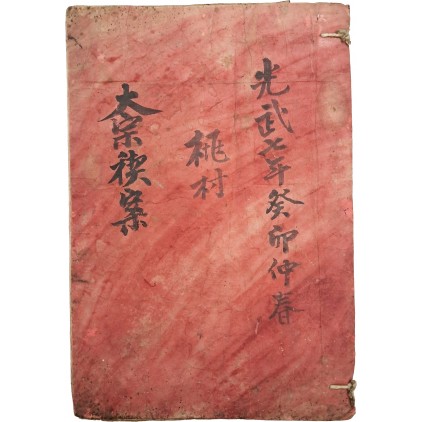 光武七年癸卯仲春
桃村
大宗稧案